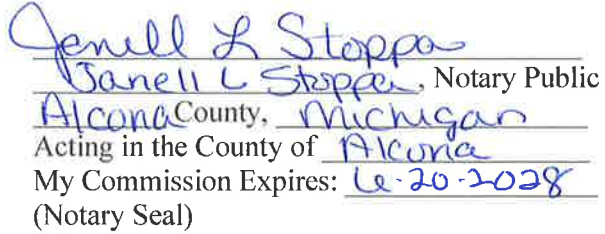 Janell L Stoppa
Janell L Stoppa, Notary Public
Alcona County, Michigan
Acting in the County of Alcona
My Commission Expires: 6-20-2028
(Notary Seal)